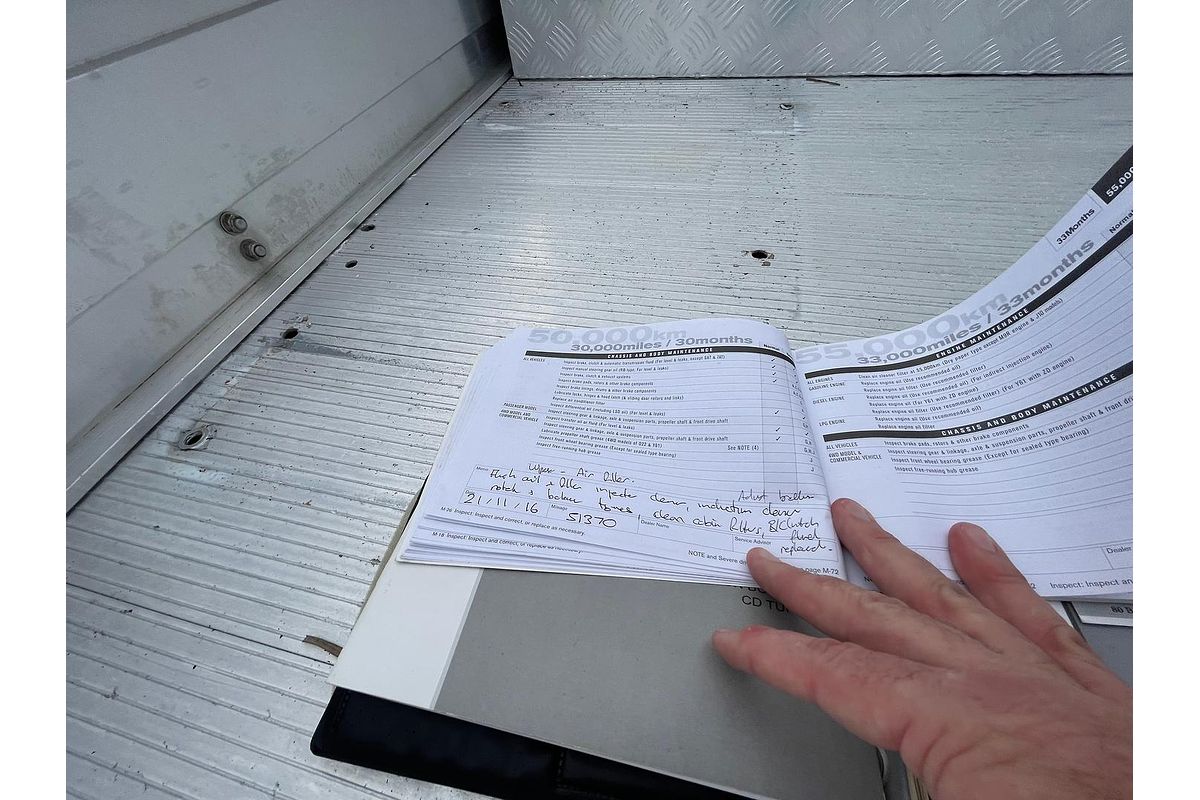 50,000km
30,000miles / 30months
CHASSIS AND BODY MAINTENANCE
Normal
ALL VEHICLES
Inspect brake, clutch & automatic transmission fluid (For level & leaks, except
Inspect manual steering gear oil (RB type, For level & leaks)
Inspect brake, clutch & exhaust systems
Inspect brake pads, rotors & other brake components
Inspect brake linings, drums & other brake components
Lubricate locks, hinges & hood latch (& sliding door rollers and links)
Replace air conditioner filter
PASSENGER MODEL
Inspect differential oil (including LSD oil) (For level & leaks)
4WD MODEL AND
COMMERCIAL VEHICLE
Inspect steering gear & linkage, axle & suspension parts, propeller shaft & front drive shaft
Inspect steering gear & linkage, axle & suspension parts, propeller shaft & front drive shaft
Lubricate propeller shaft grease (4WD models of D22 & Y61)
Inspect front wheel bearing grease (Except for sealed type bearing)
See NOTE (4)
Inspect free-running hub grease
Memo
Air filter.
oil & filter injector cleaner, induction cleaner
Adjust
clean cabin filters, B/Clutch
fluid
replaced.
21/11/16
Mileage
51370
Dealer Name
Service Advisor
M-26 Inspect: Inspect and correct, or replace as necessary.
M-18 Inspect: Inspect and correct, or replace as necessary
NOTE and Severe
page M-72
CD
33Months
55,000
55,000km
33,000miles / 33months
Normal
ENGINE MAINTENANCE
ALL ENGINES
Clean air cleaner filter at 55,000km (Dry paper type except MDR engine & J10 models)
GASOLINE ENGINE
Replace engine oil (Use recommended oil)
Replace engine oil filter (Use recommended filter)
DIESEL ENGINE
Replace engine oil (Use recommended oil) (For indirect injection engine)
Replace engine oil filter (Use recommended filter) (For YB1 with ZD engine)
LPG ENGINE
Replace engine oil (Use recommended oil)
Replace engine oil filter
CHASSIS AND BODY MAINTENANCE
ALL VEHICLES
Inspect brake pads, rotors & other brake components
4WD MODEL &
COMMERCIAL VEHICLE
Inspect steering gear & linkage, axle & suspension parts, propeller shaft & front
Inspect front wheel bearing grease (Except for sealed type bearing)
Inspect free-running hub grease
Dealer
Inspect: Inspect an